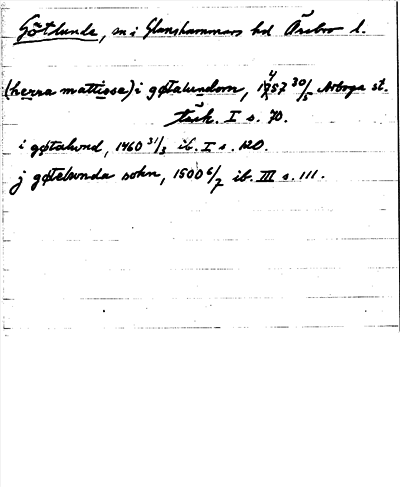 Götlunde, sn i Glanshammars hd Örebro l.
(herra mattisse) i gøtalundom, 1457 30/5 Arboga st.
tänk. I s. 70.
i gøtalund, 1460 31/3 ib. I s. 120.
j gøtelunda sokn, 1500 6/7 ib. III s. 111.